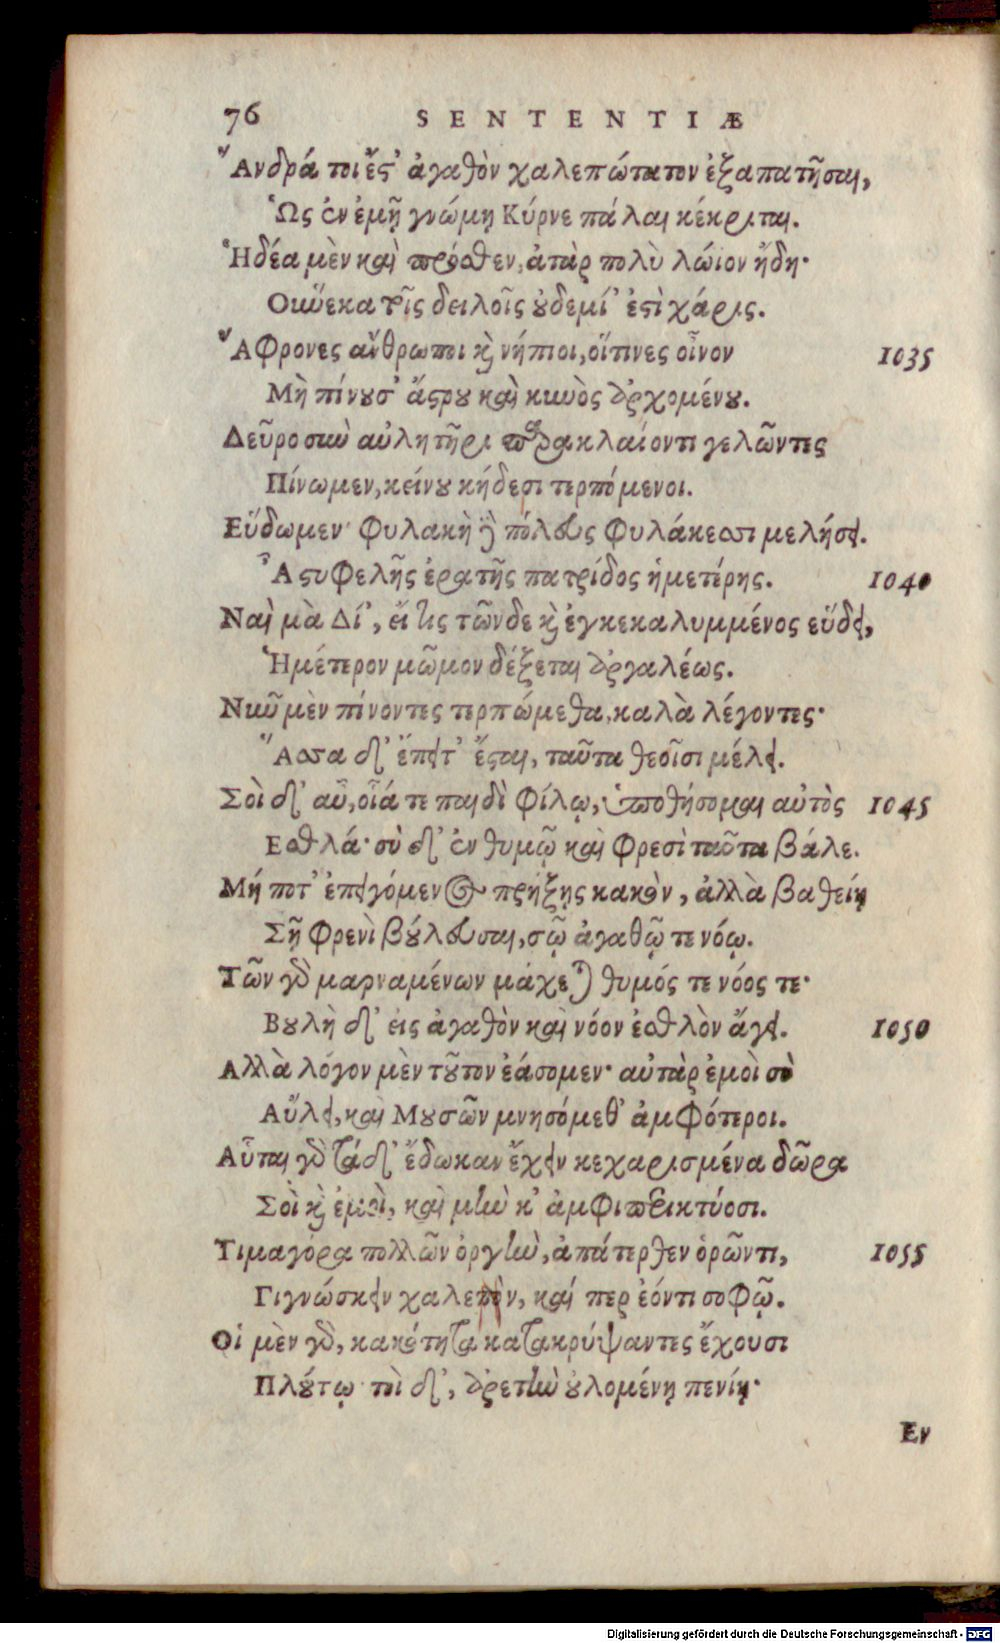 76 SENTENTIÆ
Ἄνδρά τοι ἔς' ἀγαθὸν χαλεπώτατον ἐξαπατῆσαι,
Ὡς ἐν ἐμῇ γνώμῃ Κύρνε πάλαι κέκριται.
Ἡδέα μὲν καὶ πρόσθεν, ἀτὰρ πολὺ λώιον ἤδη·
Οὕνεκα τοῖς δειλοῖς οὐδεμί' ἐστὶ χάρις.
Ἄφρονες ἄνθρωποι καὶ νήπιοι, οἵτινες οἶνον 1035
Μὴ πίνουσ' ἄστρου καὶ κυνὸς ἀρχομένου.
Δεῦρο σὺν αὐλητῆρι παρακλαίοντι γελῶντες
Πίνωμεν, κείνου κήδεσι τερπόμενοι.
Εὕδωμεν· φυλακὴ δὲ πόλευς φυλάκεσσι μελήσει.
Ἀστυφελῆς ἐρατῆς πατρίδος ἡμετέρης. 1040
Ναὶ μὰ Δί', εἴ τις τῶνδε καὶ ἐγκεκαλυμμένος εὕδει,
Ἡμέτερον μῶμον δέξεται ἀργαλέως.
Νῦν μὲν πίνοντες τερπώμεθα, καλὰ λέγοντες·
Ἅσσα δ' ἔπειτ' ἔσται, ταῦτα θεοῖσι μέλει.
Σοὶ δ' αὖ, οἷά τε παιδὶ φίλῳ, ὑποθήσομαι αὐτὸς 1045
Εσθλά· σὺ δ' ἐν θυμῷ καὶ φρεσὶ ταῦτα βάλε.
Μή ποτ' ἐπειγόμενος πρήξῃς κακὸν, ἀλλὰ βαθείῃ
Σῇ φρενὶ βούλευσαι, σῷ ἀγαθῷ τε νόῳ.
Τῶν γὰρ μαρναμένων μάχεται θυμός τε νόος τε·
Βουλὴ δ' εἰς ἀγαθὸν καὶ νόον ἐσθλὸν ἄγει. 1050
Αλλὰ λόγον μὲν τοῦτον ἐάσομεν· αὐτὰρ ἐμοὶ σὺ
Αὔλει, καὶ Μουσῶν μνησόμεθ' ἀμφότεροι.
Αὗται γὰρ τάδ' ἔδωκαν ἔχειν κεχαρισμένα δῶρα
Σοὶ καὶ ἐμοὶ, καὶ μὴν κ' ἀμφιπερικτύοσι.
Τιμαγόρα πολλῶν ὀργὴν, ἀπάτερθεν ὁρῶντι, 1055
Γιγνώσκειν χαλεπὸν, καί περ ἐόντι σοφῷ.
Οἱ μὲν γὰρ, κακότητα κατακρύψαντες ἔχουσι
Πλούτῳ· τοὶ δ', ἀρετὴν οὐλομένῃ πενίῃ·
Εν
Digitalisierung gefördert durch die Deutsche Forschungsgemeinschaft - DFG